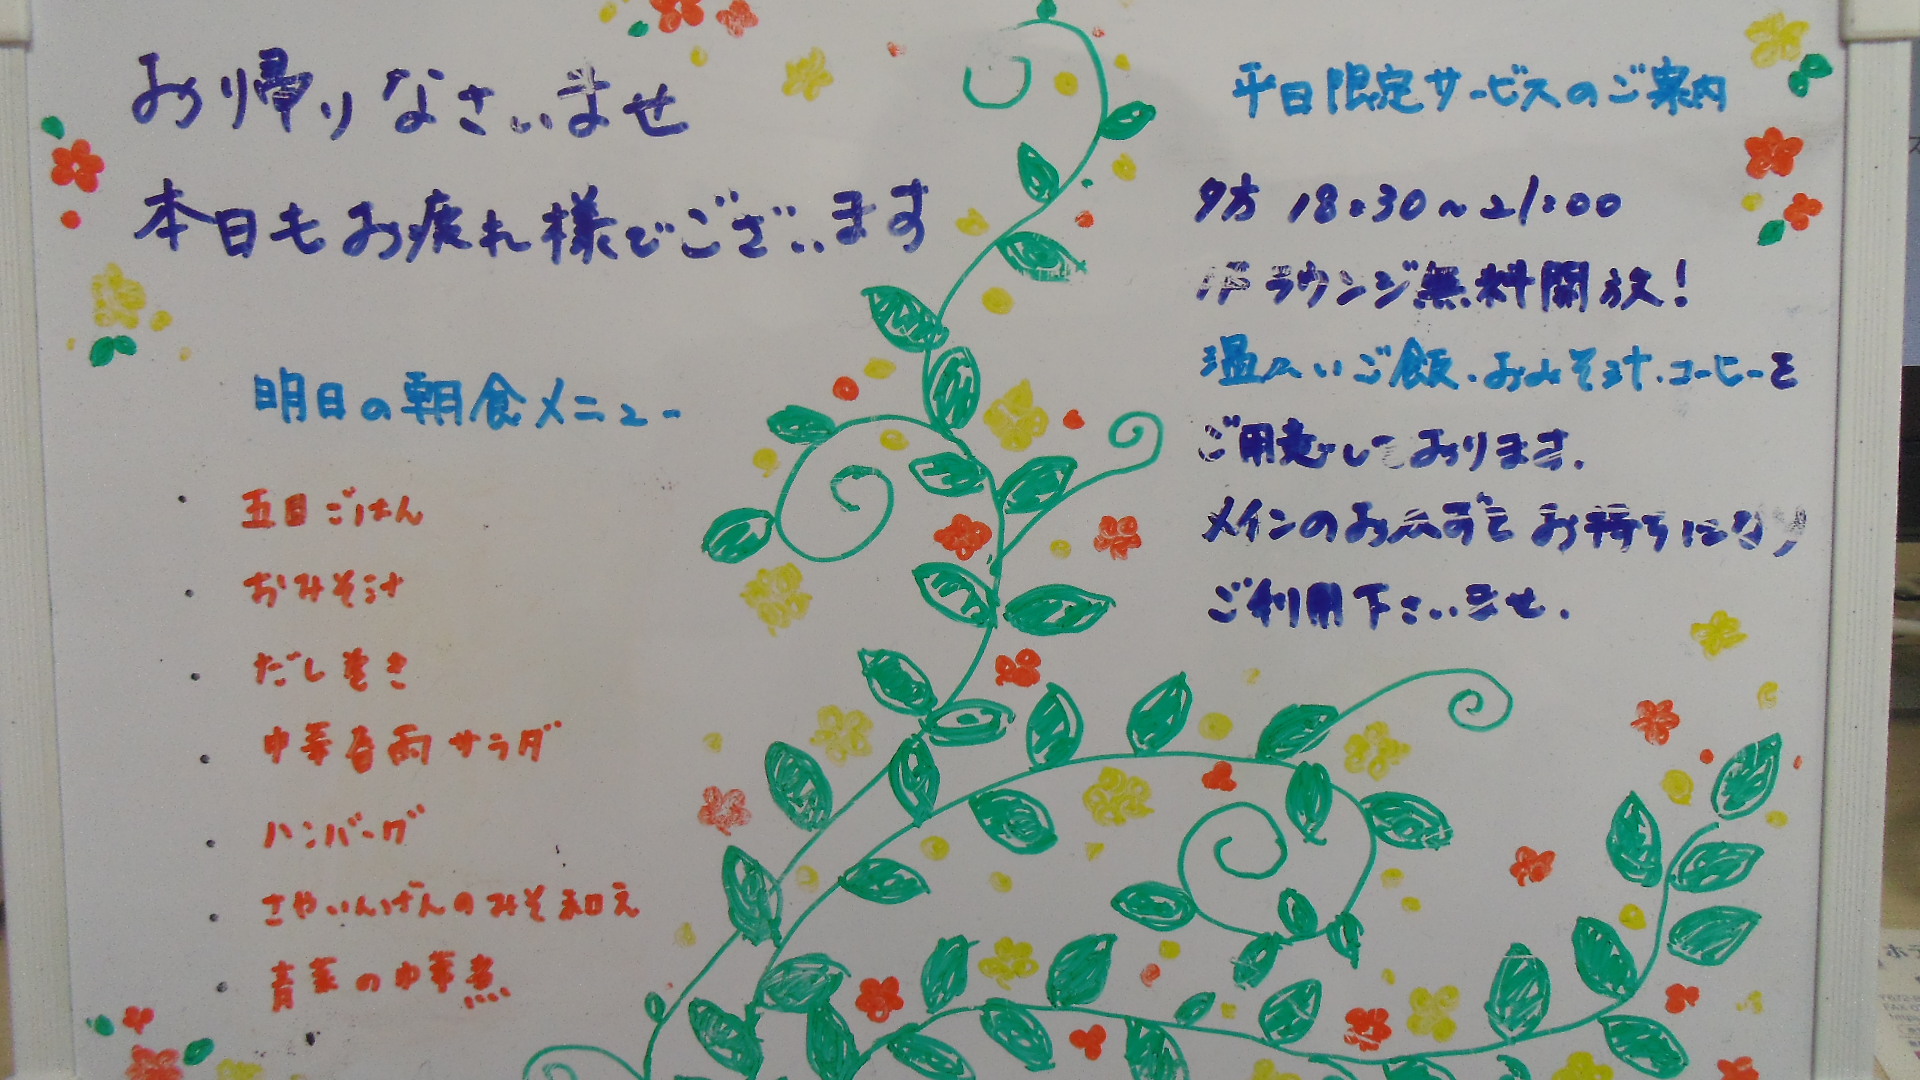 お帰りなさいませ
本日もお疲れ様でございます
明日の朝食メニュー
・五目ごはん
・おみそ汁
・だし巻き
・中華春雨サラダ
・ハンバーグ
・さやいんげんのみそ和え
・青菜の中華煮
平日限定サービスのご案内
夕方 18:30~21:00
1Fラウンジ無料開放!
温かいご飯.おみそ汁.コーヒーを
ご用意しております.
メインのおかずをお持ちになり
ご利用下さいませ.